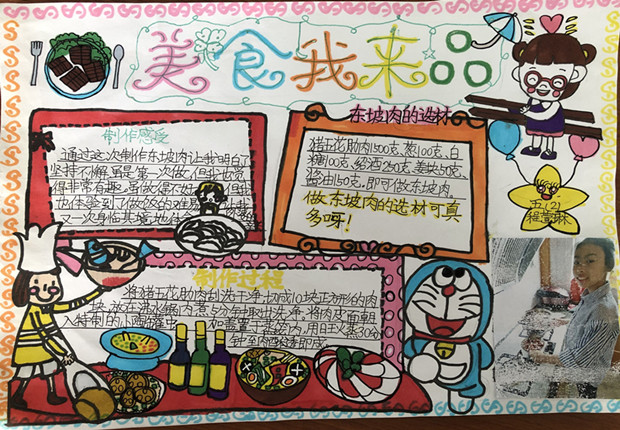 美食我来品
制作感受
通过这次制作东坡肉让我明白了
坚持不懈,虽是第一次做,但我也觉
得非常有趣,虽做得不好
也体验到了做饭的
又一次身临其境地
东坡肉的选材
猪五花肋肉1500克、葱100克、白
糖100克、绍酒250克、姜块50克、
酱油150克,即可做东坡肉
做东坡肉的选材可真
多呀!
五(2)
程萱琳
制作过程
将猪五花肋肉刮洗干净,切成10块正方形的肉
块,放在沸水锅内煮5分钟取出洗净,将肉皮面朝
入特制的
置于蒸笼内,用旺火蒸30分
钟至肉酥透即成